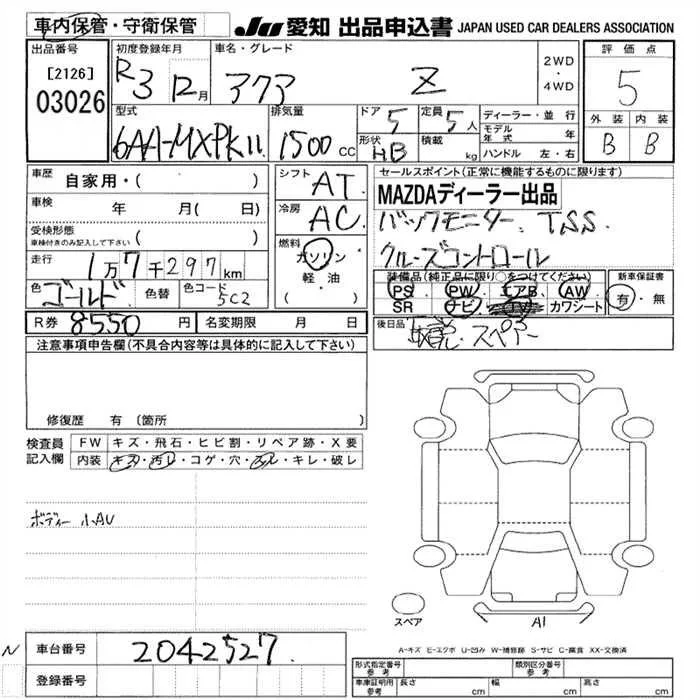 車内保管・守衛保管
JU 愛知 出品申込書 JAPAN USED CAR DEALERS ASSOCIATION
出品番号
[2126]
03026
初度登録年月
R3 12月
車名・グレード
アクア Z
2WD
・
4WD
評価点
5
外装 内装
B B
型式
6AA-MXPK11
排気量
1500cc
ドア 5
形状 HB
定員 5人
積載 kg
ディーラー・並行
モデル年式 年
ハンドル 左・右
車歴 自家用・( )
車検 年 月( 日)
受検形態
車検付きのみ記入して下さい ( )
走行 1万7千297km
色 ゴールド 色替 色コード 5C2
R券 8550円 名変期限 月 日
シフト AT
冷房 AC
燃料
ガソリン
軽・油
( )
セールスポイント(正常に機能するものに限ります)
MAZDAディーラー出品
バックモニター. TSS.
クルーズコントロール
装備品(純正品に限り○をつけてください)
PS. PW. エアB. AW.
SR ナビ. カワシート
新車保証書
有・無
後日品
スペアー
注意事項申告欄(不具合内容等は具体的に記入して下さい)
修復歴 有 〔箇所 〕
検査員記入欄
FW キズ・飛石・ヒビ割・リペア跡・X要
内装 キズ・汚レ・コゲ・穴・スレ・キレ・破レ
ボディー 小AU
スペア
A1
A-キズ E-エクボ U-凹み W-補修跡 S-サビ C-腐食 XX-交換済
N 車台番号 2042527
登録番号
形式指定番号 参考
類別区分番号 参考
車庫証明用 参考 長さ cm 幅 cm 高さ cm